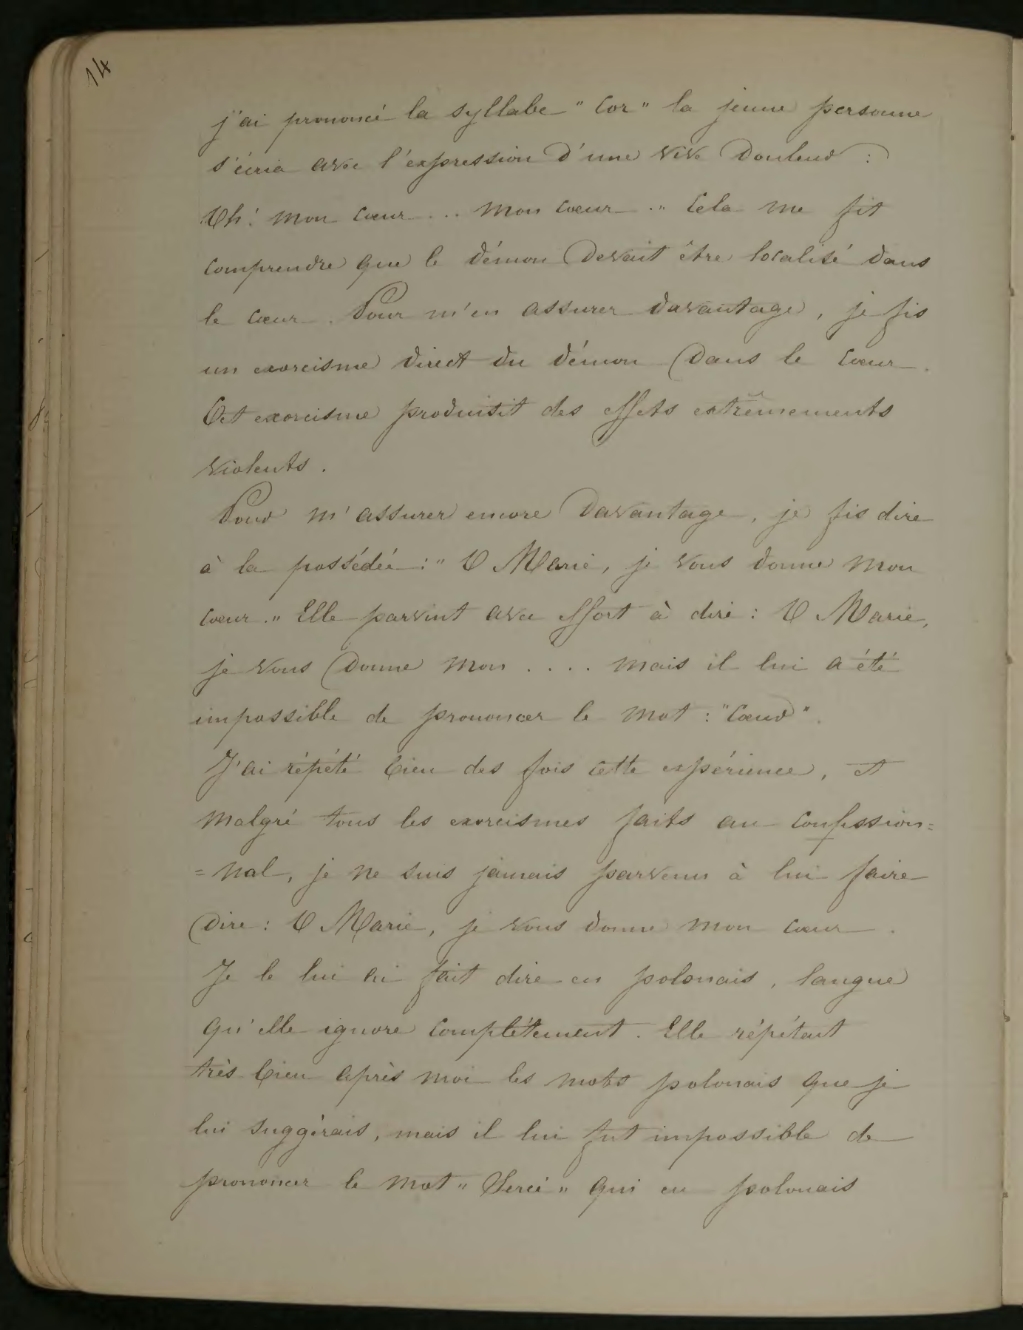 14
j'ai prononcé la syllabe " Cor " la jeune personne
s'écria avec l'expression d'une vive Douleur :
Oh! mon Cœur ... mon Cœur . " Cela me fit
comprendre que le démon Devait être localisé dans
le Cœur. Pour m'en assurer davantage, je fis
un exorcisme direct du démon Dans le Cœur.
Cet exorcisme produisit des effets extrêmements
violents.
Pour m'assurer encore Davantage, je fis dire
à la possédée : " O Marie, je vous donne mon
Cœur. " Elle parvint avec effort à dire : O Marie,
je vous Donne mon .... mais il lui a été
impossible de prononcer le mot : "Cœur".
J'ai répété bien des fois cette expérience, et
malgré tous les exorcismes faits au Confession=
=nal, je ne suis jamais parvenu à lui faire
Dire : O Marie, je vous donne mon Cœur.
Je le lui ai fait dire en polonais, langue
qu'elle ignore Complètement. Elle répétait
très bien après moi les mots polonais que je
lui suggérais, mais il lui fut impossible de
prononcer le mot " Serce " qui en polonais